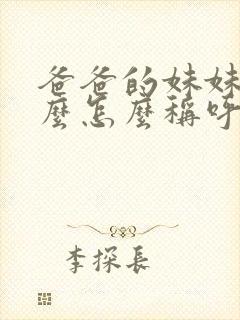 爸爸的妹妹
麼怎麼稱呼
李探長